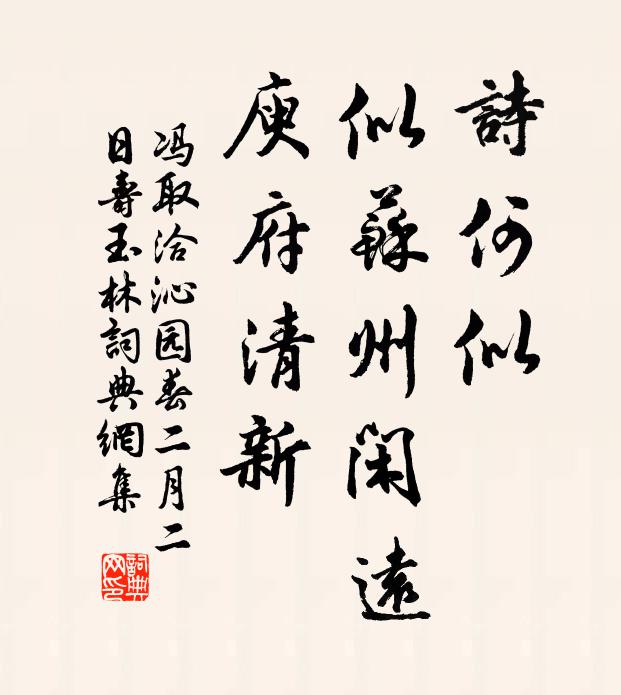 詩何似
似蘇州閑遠
庾府清新
冯取洽沁园春二月二
日壽玉林詞典網集
詞典
网印